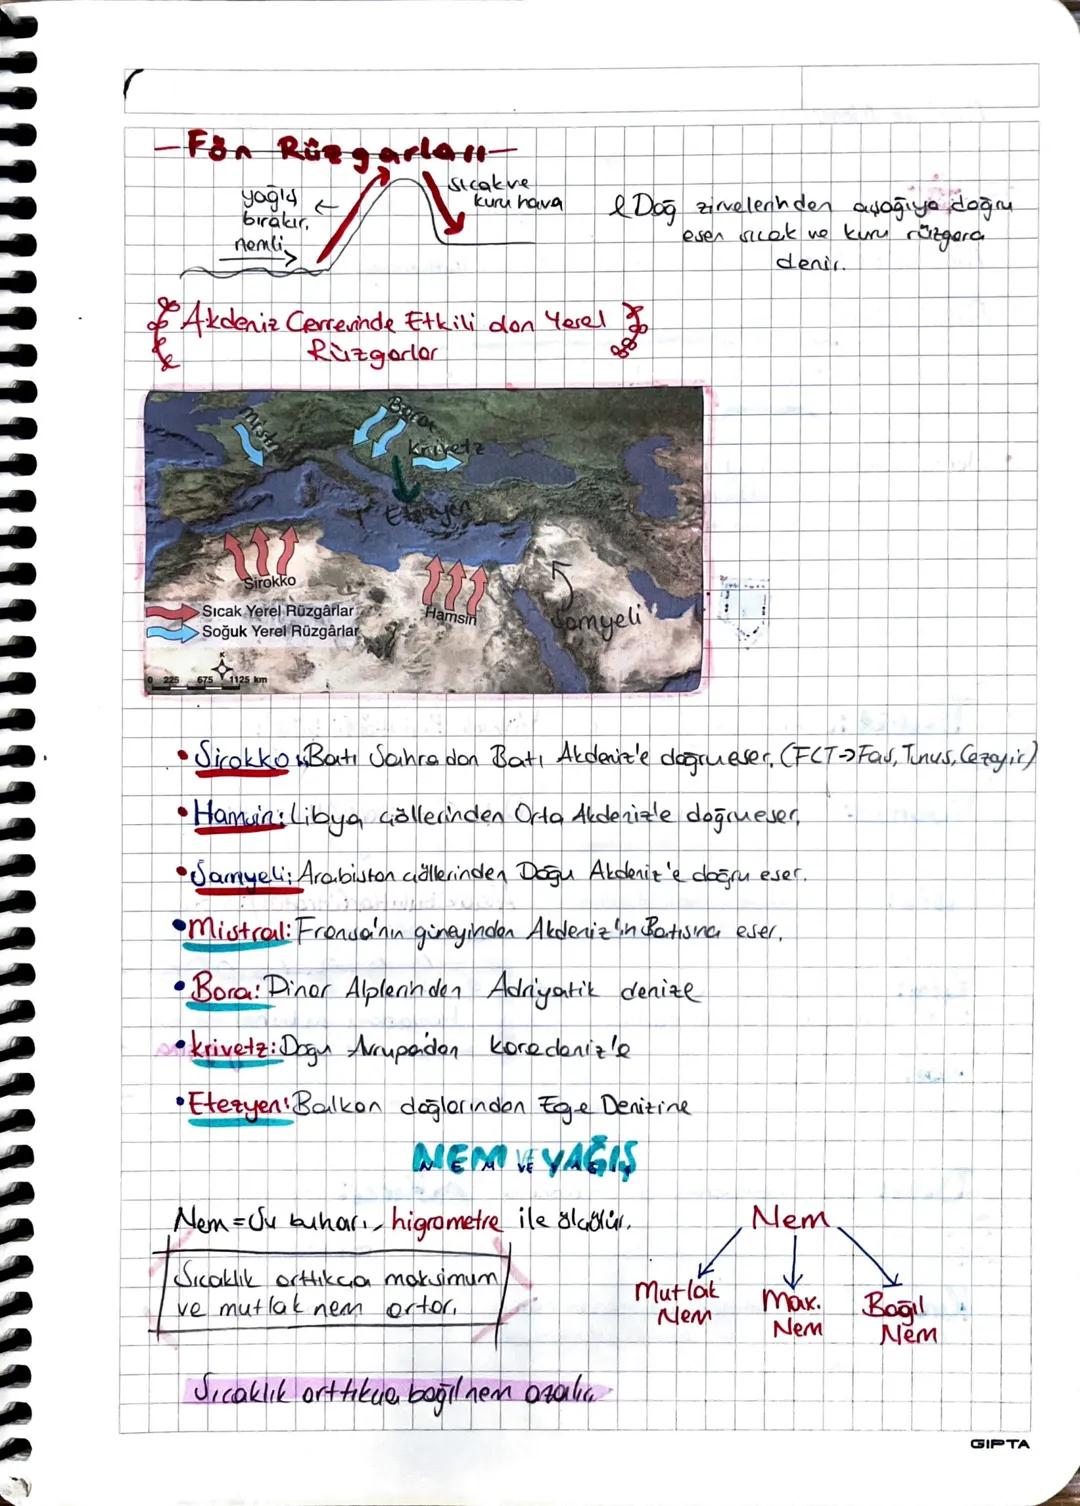 -Fön Rüzgarları-
yağış
bırakır,
nemli
Sıcak ve
kuru hava
Dağ zirvelerinden aşağıya doğru
esen sıcak ve kuru rüzgara
denir.
Akdeniz Çevresinde Etkili olan Yerel
Rüzgarlar
Mistral
Bora
Krivetz
Etezyen
Sirokko
Hamsin
Samyeli
Sıcak Yerel Rüzgârlar
Soğuk Yerel Rüzgârlar
K
0 225 675 1125 km
• Sirokko: Batı Sahradan Batı Akdeniz'e doğru eser. (FCT->Fas, Tunus, Cezayir)
• Hamsin: Libya çöllerinden Orta Akdeniz'e doğru eser,
• Samyeli: Arabistan çöllerinden Doğu Akdeniz'e doğru eser.
• Mistral: Fransa'nın güneyinden Akdeniz'in Batısına eser.
• Bora: Dinar Alplerinden Adriyatik denize
• krivetz: Doğu Avrupa'dan karadeniz'e
• Etezyen: Balkan dağlarından Ege Denizine
NEM VE YAĞIŞ
Nem = Su buharı, higrometre ile ölçülür.
Sıcaklık arttıkça maksimum
ve mutlak nem artar.
Nem
Mutlak
Nem
Max.
Nem
Bağıl
Nem
Sıcaklık arttıkça bağıl nem azalır.
GIPTA